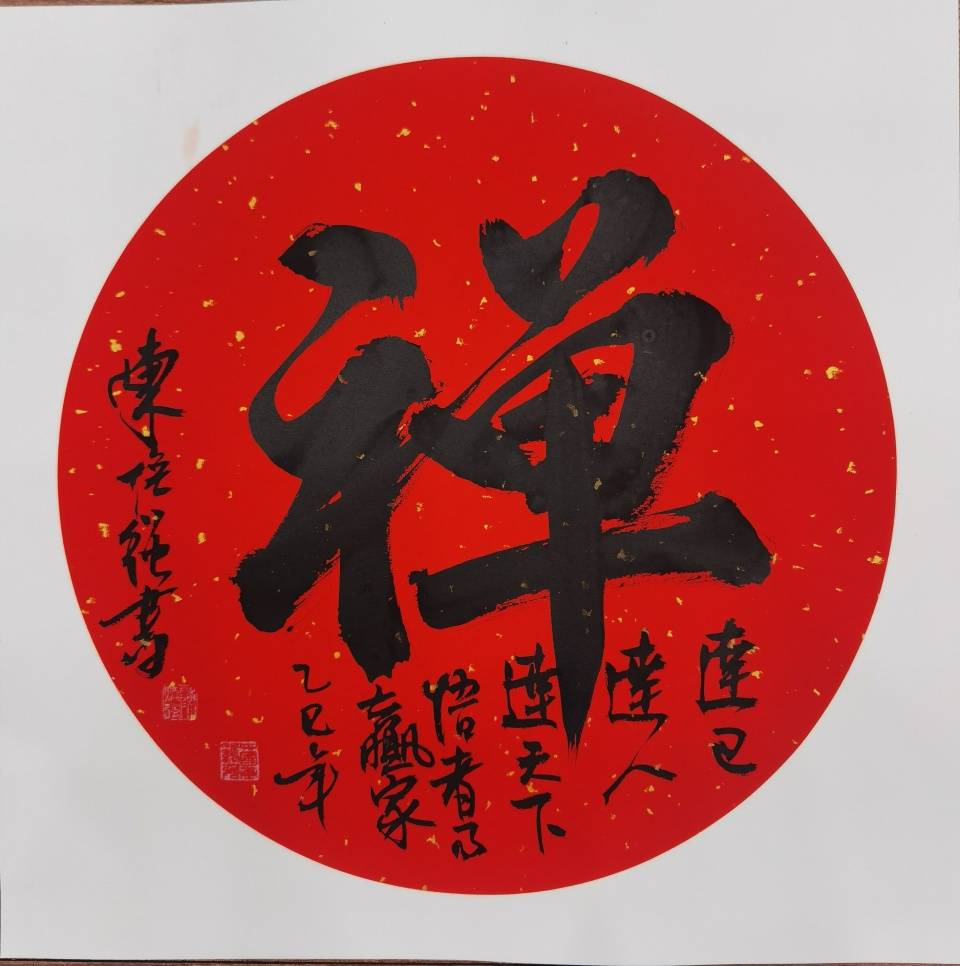 禅
達己
達人
達天下
悟者乃
大赢家
乙巳年
陳培强書